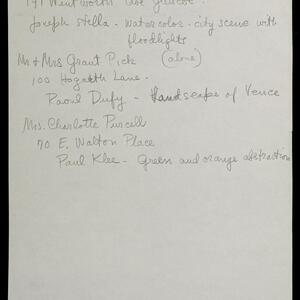 191 Wentworth Ave Glencoe.
Joseph Stella - Watercolor - city scene with
floodlights
Mr & Mrs Grant Pick (alone)
100 Hogarth Lane -
Raoul Dufy - Landscape of Vence
Mrs. Charlotte Purcell
70 E. Walton Place
Paul Klee - Green and orange abstraction